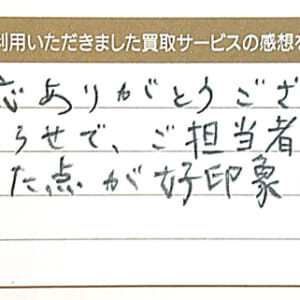 利用いただきました買取サービスの感想を
応ありがとうござ
らせで、ご担当者
た点が好印象